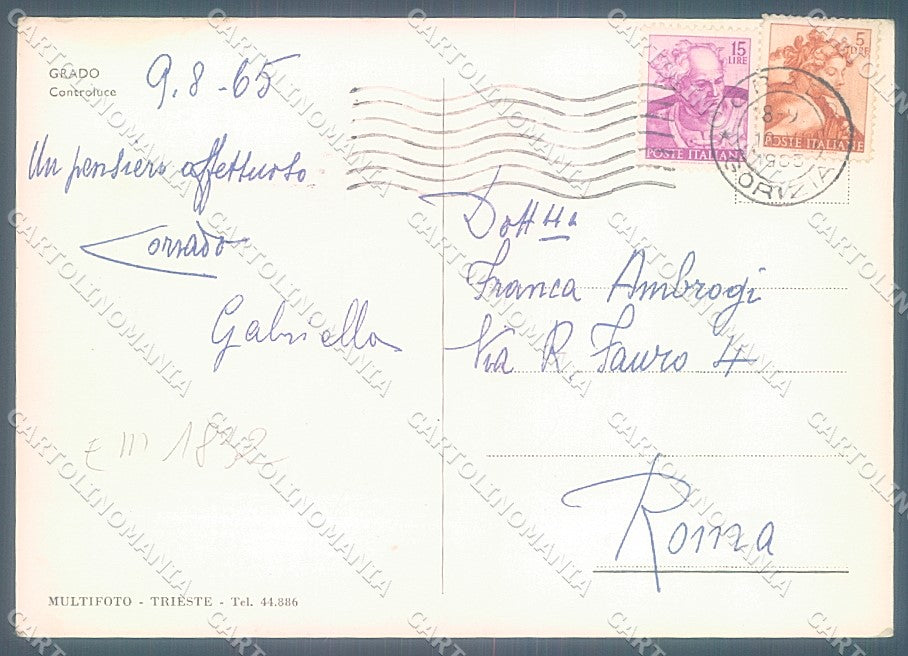 GRADO
Controluce
9.8-65
Un pensiero affettuoso
Corrado
Gabriella
15
LIRE
POSTE ITALIANE
5
LIRE
POSTE ITALIANE
1965
GORIZIA
Franca Ambrogi
Via R. Fauro 4
Roma
MULTIFOTO - TRIESTE - Tel. 44.886
CARTOLINOMANIA